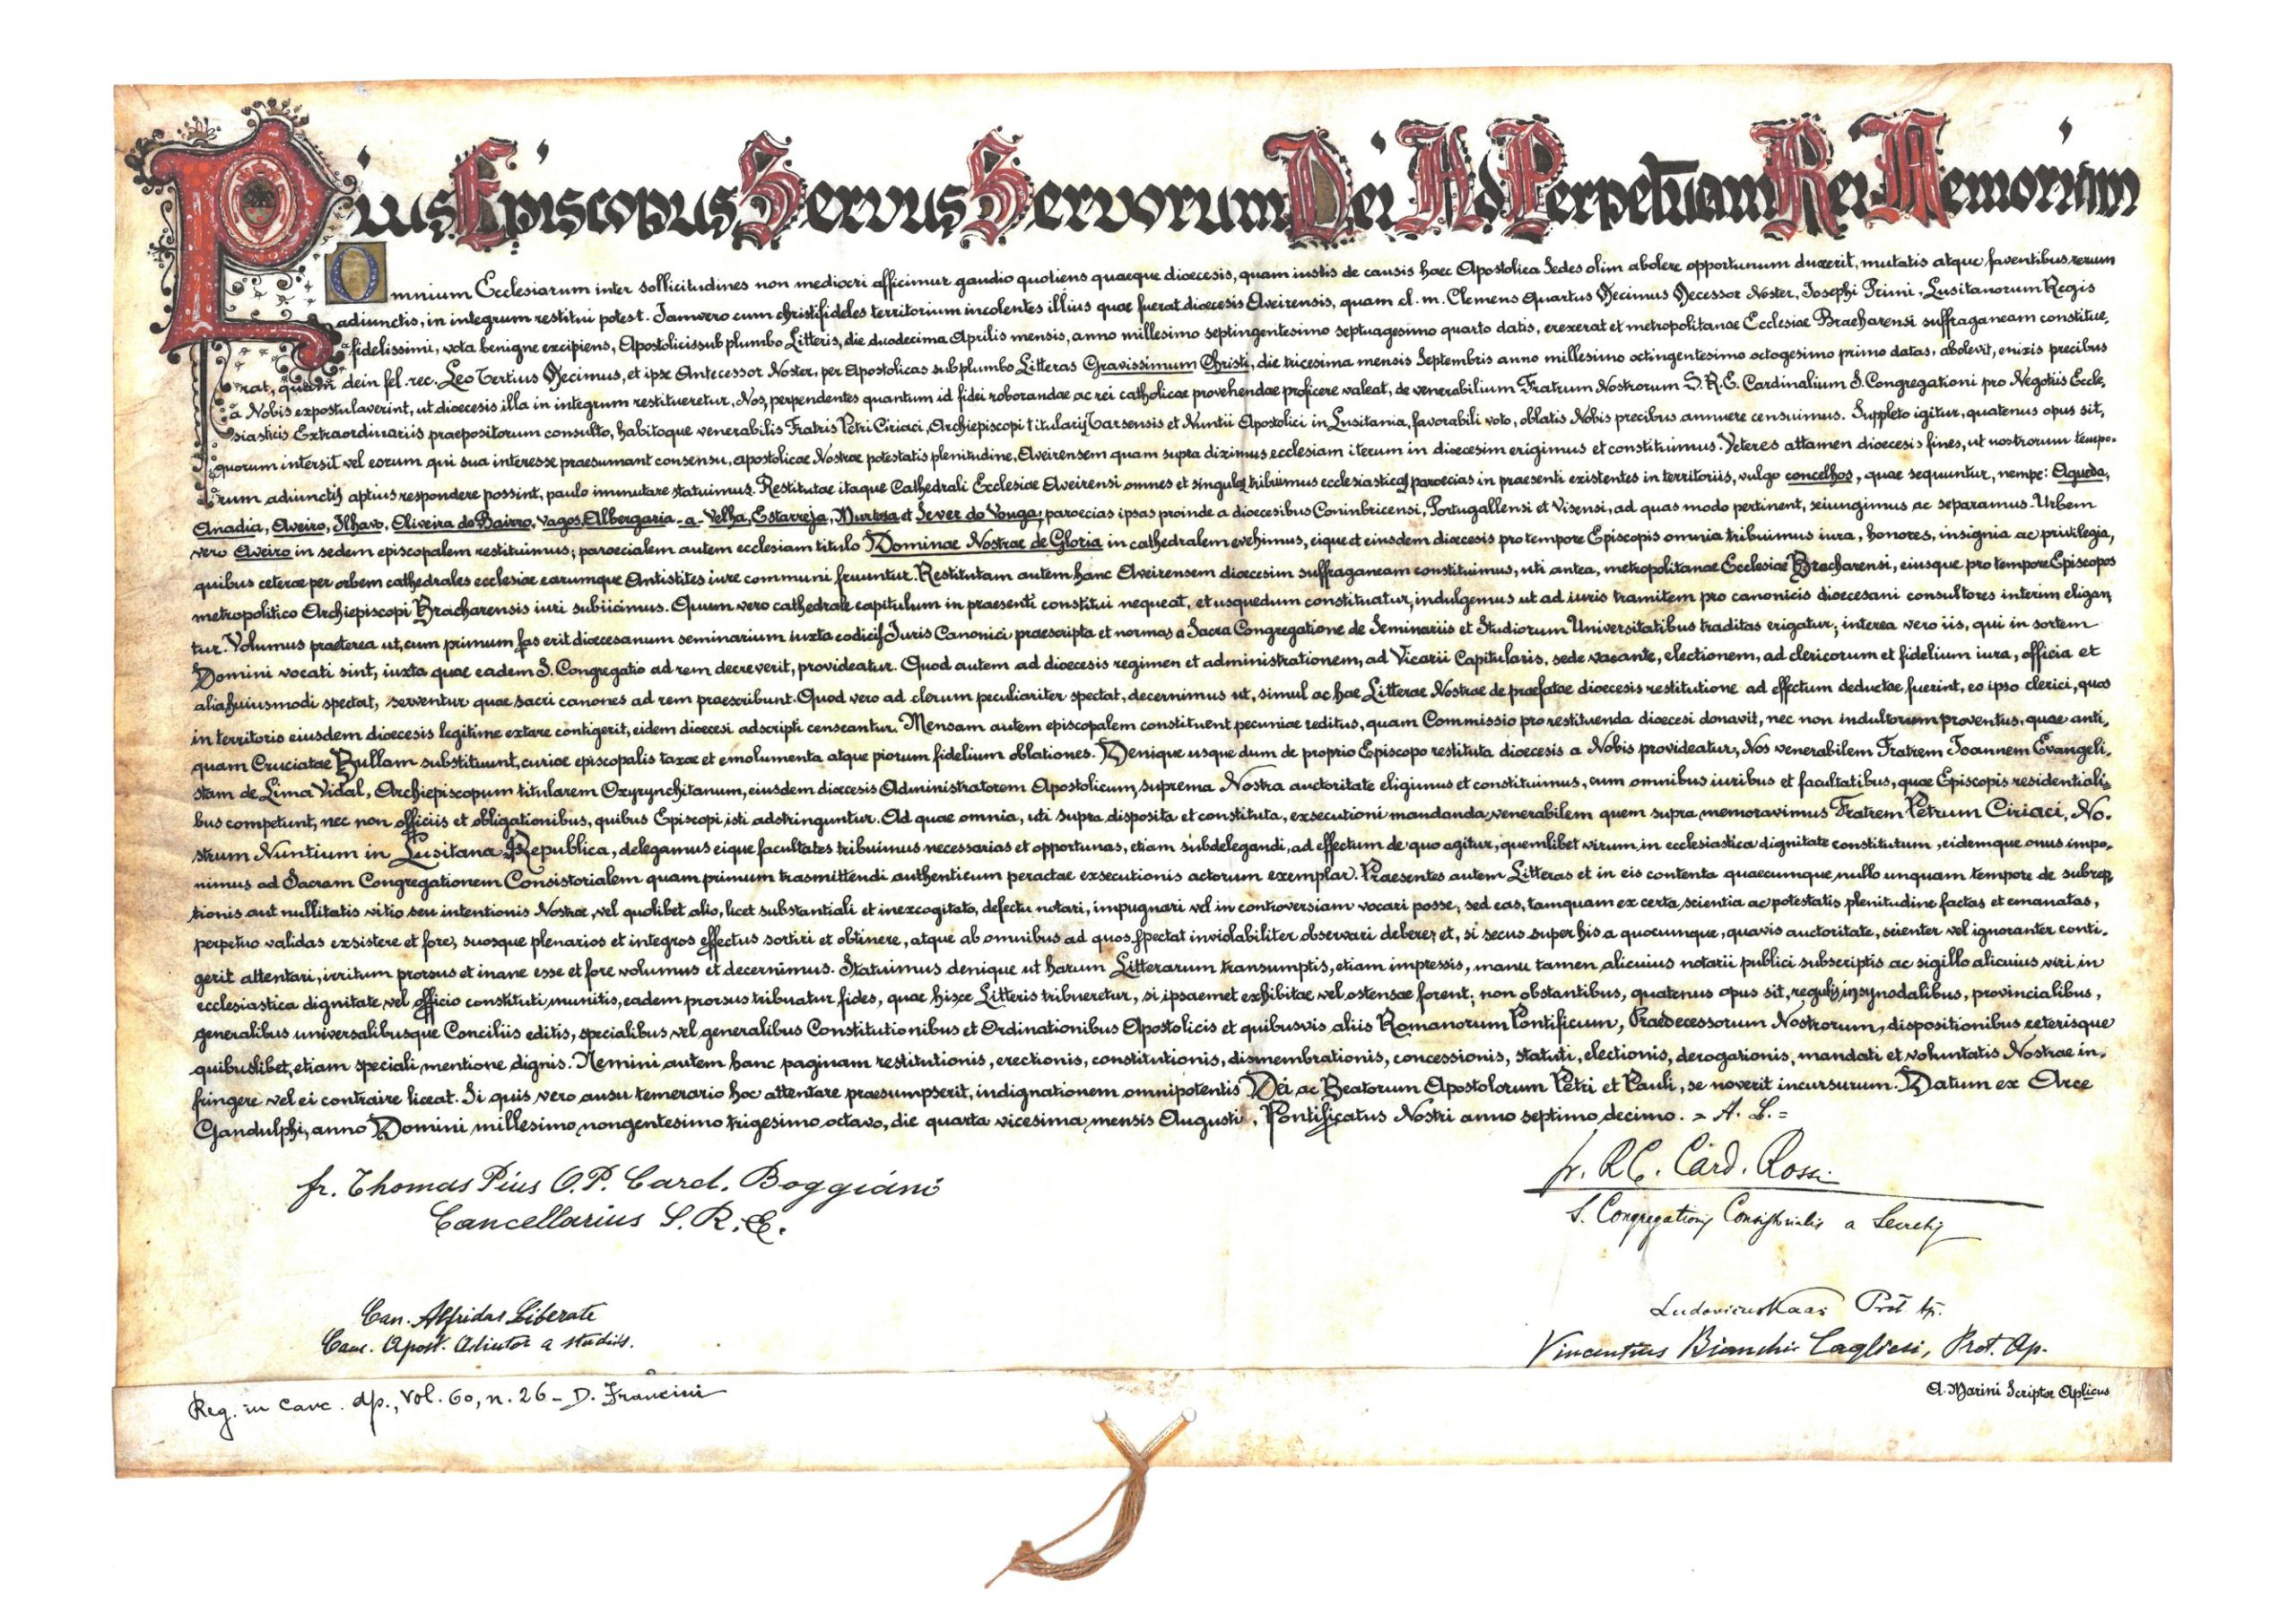 Pius Episcopus Servus Servorum Dei Ad Perpetuam Rei Memoriam
Omnium Ecclesiarum inter sollicitudines non mediocri afficimur gaudio quotiens quaeque dioecesis, quam iustis de causis haec Apostolica Sedes olim abolere opportunum duxerit, mutatis atque faventibus rerum
adiunctis, in integrum restitui potest. Iamvero cum christifideles territorium incolentes illius quae fuerat dioecesis Aveirensis, quam cl. m. Clemens Quartus Decimus Decessor Noster, Josephi Primi, Lusitanorum Regis
fidelissimi, vota benigne excipiens, Apostolicis sub plumbo Litteris, die duodecima Aprilis mensis, anno millesimo septingentesimo septuagesimo quarto datis, erexerat et metropolitanae Ecclesiae Bracharensi suffraganeam constitue,
rat, quam dein fel. rec. Leo Tertius Decimus, et ipse Antecessor Noster, per Apostolicas sub plumbo Litteras Gravissimum Christi, die tricesima mensis Septembris anno millesimo octingentesimo octogesimo primo datas, abolevit, enixis precibus
a Nobis expostulaverint, ut dioecesis illa in integrum restitueretur, Nos, perpendentes quantum id fidei roborandae ac rei catholicae provehendae proficere valeat, de venerabilium Fratrum Nostrorum S. R. E. Cardinalium S. Congregationi pro Negotiis Eccle,
siasticis Extraordinariis praepositorum consulto, habitoque venerabilis Fratris Petri Ciriaci, Archiepiscopi titularis Tarsensis et Nuntii Apostolici in Lusitania, favorabili voto, oblatis Nobis precibus annuere censuimus. Suppleto igitur, quatenus opus sit,
quorum intersit vel eorum qui sua interesse praesumant consensu, apostolicae Nostrae potestatis plenitudine, Aveirensem quam supra diximus ecclesiam iterum in dioecesim erigimus et constituimus. Veteres attamen dioecesis fines, ut nostrorum tempo-
rum adiunctis aptius respondere possint, paulo immutare statuimus. Restitutae itaque Cathedrali Ecclesiae Aveirensi omnes et singulas tribuimus ecclesiasticas paroecias in praesenti existentes in territoriis, vulgo concelhos, quae sequuntur, nempe: Agueda,
Anadia, Aveiro, Ilhavo, Oliveira do Bairro, Vagos, Albergaria-a-Velha, Estarreja, Murtosa et Sever do Vouga, paroecias ipsas proinde a dioecesibus Conimbricensi, Portugallensi et Visensi, ad quas modo pertinent, seiungimus ac separamus. Urbem
vero Aveiro in sedem episcopalem restituimus; paroecialem autem ecclesiam titulo Dominae Nostrae de Gloria in cathedralem evehimus, eique et eiusdem dioecesis pro tempore Episcopis omnia tribuimus iura, honores, insignia ac privilegia,
quibus ceterae per orbem cathedrales ecclesiae earumque Antistites iure communi fruuntur. Restitutam autem hanc Aveirensem dioecesim suffraganeam constituimus, uti antea, metropolitanae Ecclesiae Bracharensi, eiusque pro tempore Episcopos
metropolitico Archiepiscopi Bracharensis iuri subiicimus. Quum vero cathedrale capitulum in praesenti constitui nequeat, et usquedum constituatur, indulgemus ut ad iuris tramitem pro canonicis dioecesani consultores interim eligan,
tur. Volumus praeterea ut, cum primum fas erit dioecesanum seminarium iuxta codicis Juris Canonici praescripta et normas a Sacra Congregatione de Seminariis et Studiorum Universitatibus traditas erigatur; interea vero iis, qui in sortem
Domini vocati sint, iuxta quae eadem S. Congregatio ad rem decreverit, provideatur. Quod autem ad dioecesis regimen et administrationem, ad Vicarii Capitularis, sede vacante, electionem, ad clericorum et fidelium iura, officia et
alia huiusmodi spectat, serventur quae sacri canones ad rem praescribunt. Quod vero ad clerum peculiariter spectat, decernimus ut, simul ac hae Litterae Nostrae de praefatae dioecesis restitutione ad effectum deductae fuerint, eo ipso clerici, quos
in territorio eiusdem dioecesis legitime extare contigerit, eidem dioecesi adscripti censeantur. Mensam autem episcopalem constituent pecuniae reditus, quam Commissio pro restituenda dioecesi donavit, nec non indultorum proventus, quae anti,
quam Cruciatae Bullam substituunt, curiae episcopalis taxae et emolumenta atque piorum fidelium oblationes. Denique usque dum de proprio Episcopo restituta dioecesis a Nobis provideatur, Nos venerabilem Fratrem Joannem Evangeli,
stam de Lima Vidal, Archiepiscopum titularem Oxyrynchitanum, eiusdem dioecesis Administratorem Apostolicum, suprema Nostra auctoritate eligimus et constituimus, cum omnibus iuribus et facultatibus, quae Episcopis residentiali=
bus competunt, nec non officiis et obligationibus, quibus Episcopi isti adstringuntur. Ad quae omnia, uti supra disposita et constituta, exsecutioni mandanda, venerabilem quem supra memoravimus Fratrem Petrum Ciriaci, No-
strum Nuntium in Lusitana Republica, delegamus eique facultates tribuimus necessarias et opportunas, etiam subdelegandi, ad effectum de quo agitur, quemlibet virum in ecclesiastica dignitate constitutum, eidemque onus impo-
nimus ad Sacram Congregationem Consistorialem quam primum trasmittendi authenticum peractae exsecutionis actorum exemplar. Praesentes autem Litteras et in eis contenta quaecumque, nullo unquam tempore de subrep,
tionis aut nullitatis vitio seu intentionis Nostrae, vel quolibet alio, licet substantiali et inexcogitato, defectu notari, impugnari vel in controversiam vocari posse, sed eas, tamquam ex certa scientia ac potestatis plenitudine factas et emanatas,
perpetuo validas exsistere et fore, suosque plenarios et integros effectus sortiri et obtinere, atque ab omnibus ad quos spectat inviolabiliter observari debere; et, si secus super his a quocumque, quavis auctoritate, scienter vel ignoranter conti-
gerit attentari, irritum prorsus et inane esse et fore volumus et decernimus. Statuimus denique ut harum Litterarum transumptis, etiam impressis, manu tamen alicuius notarii publici subscriptis ac sigillo alicuius viri in
ecclesiastica dignitate vel officio constituti munitis, eadem prorsus tribuatur fides, quae hisce Litteris tribueretur, si ipsaemet exhibitae vel ostensae forent; non obstantibus, quatenus opus sit, regulis in synodalibus, provincialibus,
generalibus universalibusque Conciliis editis, specialibus vel generalibus Constitutionibus et Ordinationibus Apostolicis et quibusvis aliis Romanorum Pontificum, Praedecessorum Nostrorum, dispositionibus ceterisque
quibuslibet, etiam speciali mentione dignis. Nemini autem hanc paginam restitutionis, erectionis, constitutionis, dismembrationis, concessionis, statuti, electionis, derogationis, mandati et voluntatis Nostrae in,
fringere vel ei contraire liceat. Si quis vero ausu temerario hoc attentare praesumpserit, indignationem omnipotentis Dei ac Beatorum Apostolorum Petri et Pauli, se noverit incursurum. Datum ex Arce
Gandulphi, anno Domini millesimo nongentesimo trigesimo octavo, die quarta vicesima mensis Augusti, Pontificatus Nostri anno septimo decimo. = A. L. =
fr. Thomas Pius O.P. Card. Boggiani
Cancellarius S. R. E.
fr. R C. Card. Rossi
S. Congregationis Consistorialis a Secretis
Can. Alfridus Liberati
Canc. Apost. Adiutor a studiis.
Ludovicus Kaas Prot. Ap.
Vincentius Bianchi Cagliesi, Prot. Ap.
Reg. in Canc. Ap., Vol. 60, n. 26 - D. Francini
A. Marini Scriptor Aplicus